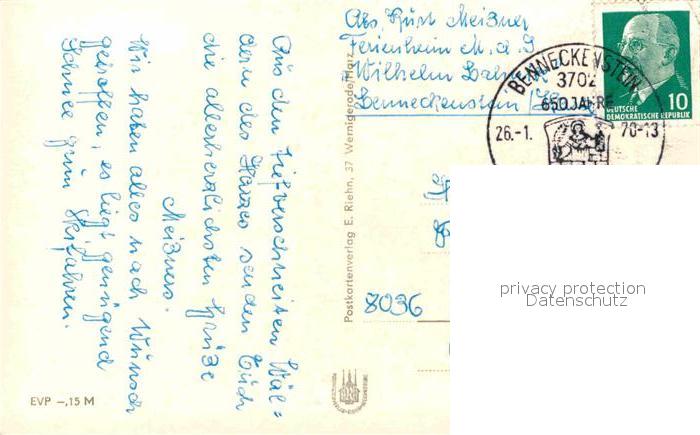 Abs Kurt Meißner
Ferienheim M.d.I
Wilhelm
Benneckenstein /Harz
BENNECKENSTEIN
3702
650 JAHRE
26.-1. 70-13
10
DEUTSCHE
DEMOKRATISCHE REPUBLIK
Aus den tiefverschneiten Wäl=
dern des Harzes senden Euch
die allerherzlichsten Grüße
Meißners.
Wir haben alles nach Wunsch
getroffen, es liegt genügend
Schnee zum Skifahren.
Postkartenverlag E. Riehn, 37 Wernigerode/Harz
8036
privacy protection
Datenschutz
EVP –,15 M